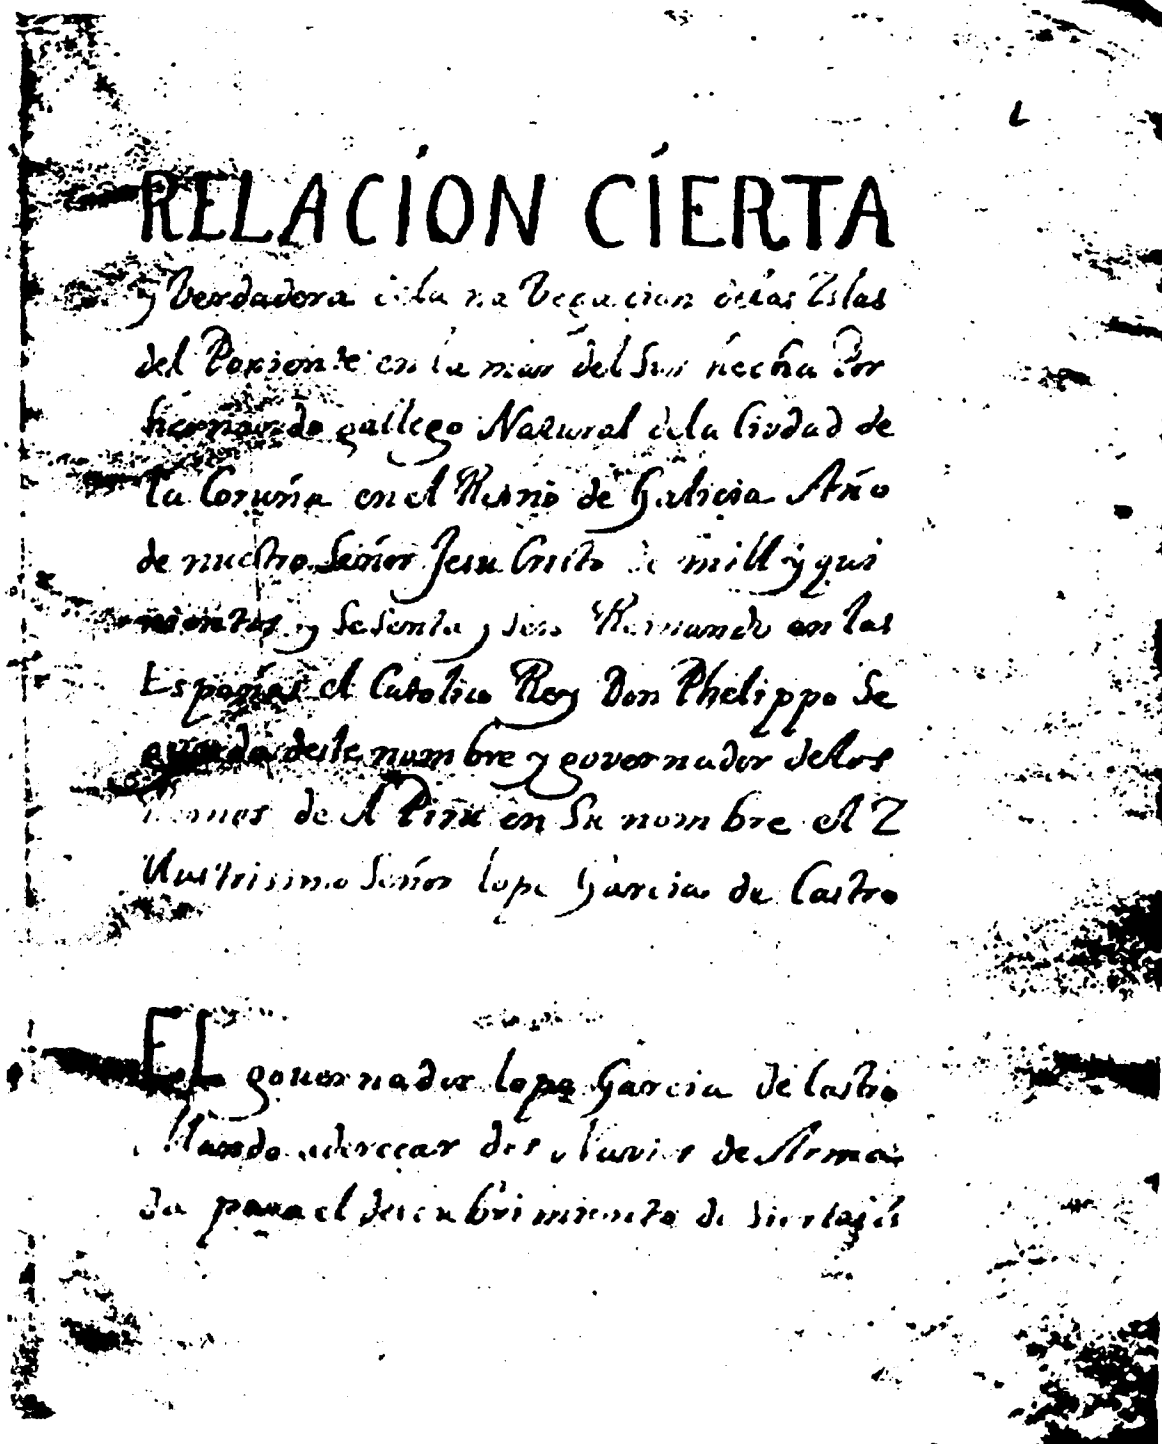 RELACÍON CÍERTA
y Verdadera dela naVegacion delas Yslas
del Poniente en la mar del Sur hecha Por
hernando gallego Natural dela Ciudad de
la Coruña en el Reino de Galicia Año
de nuestro Señor Jesu Cristo de mill y qui
nientos y sesenta y seis Reinando en las
Españas el Catolico Rey Don Phelippo Se
gundo deste nombre y governador delos
Reinos de el Piru en Su nombre el I
llustrisimo Señor lope Garcia de Castro
EL gouernador lope Garcia de Castro
Mando aderecar dos Navios de Arma
da para el descubrimiento de siertas is